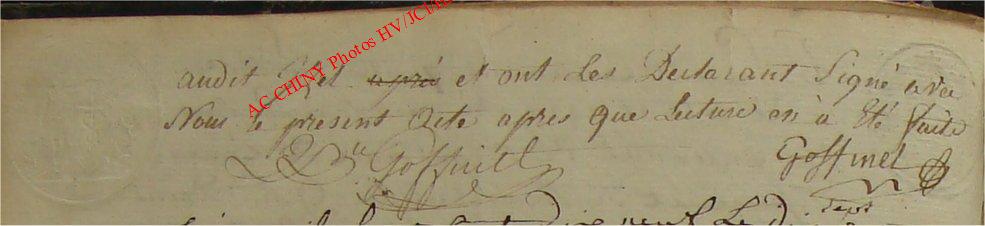 AC CHINY Photos HV/JCI/
audit Izel après et ont les Declarant Signé avec
Nous le present Acte apres que Lecture en à Eté faite
Goffinet Goffinet